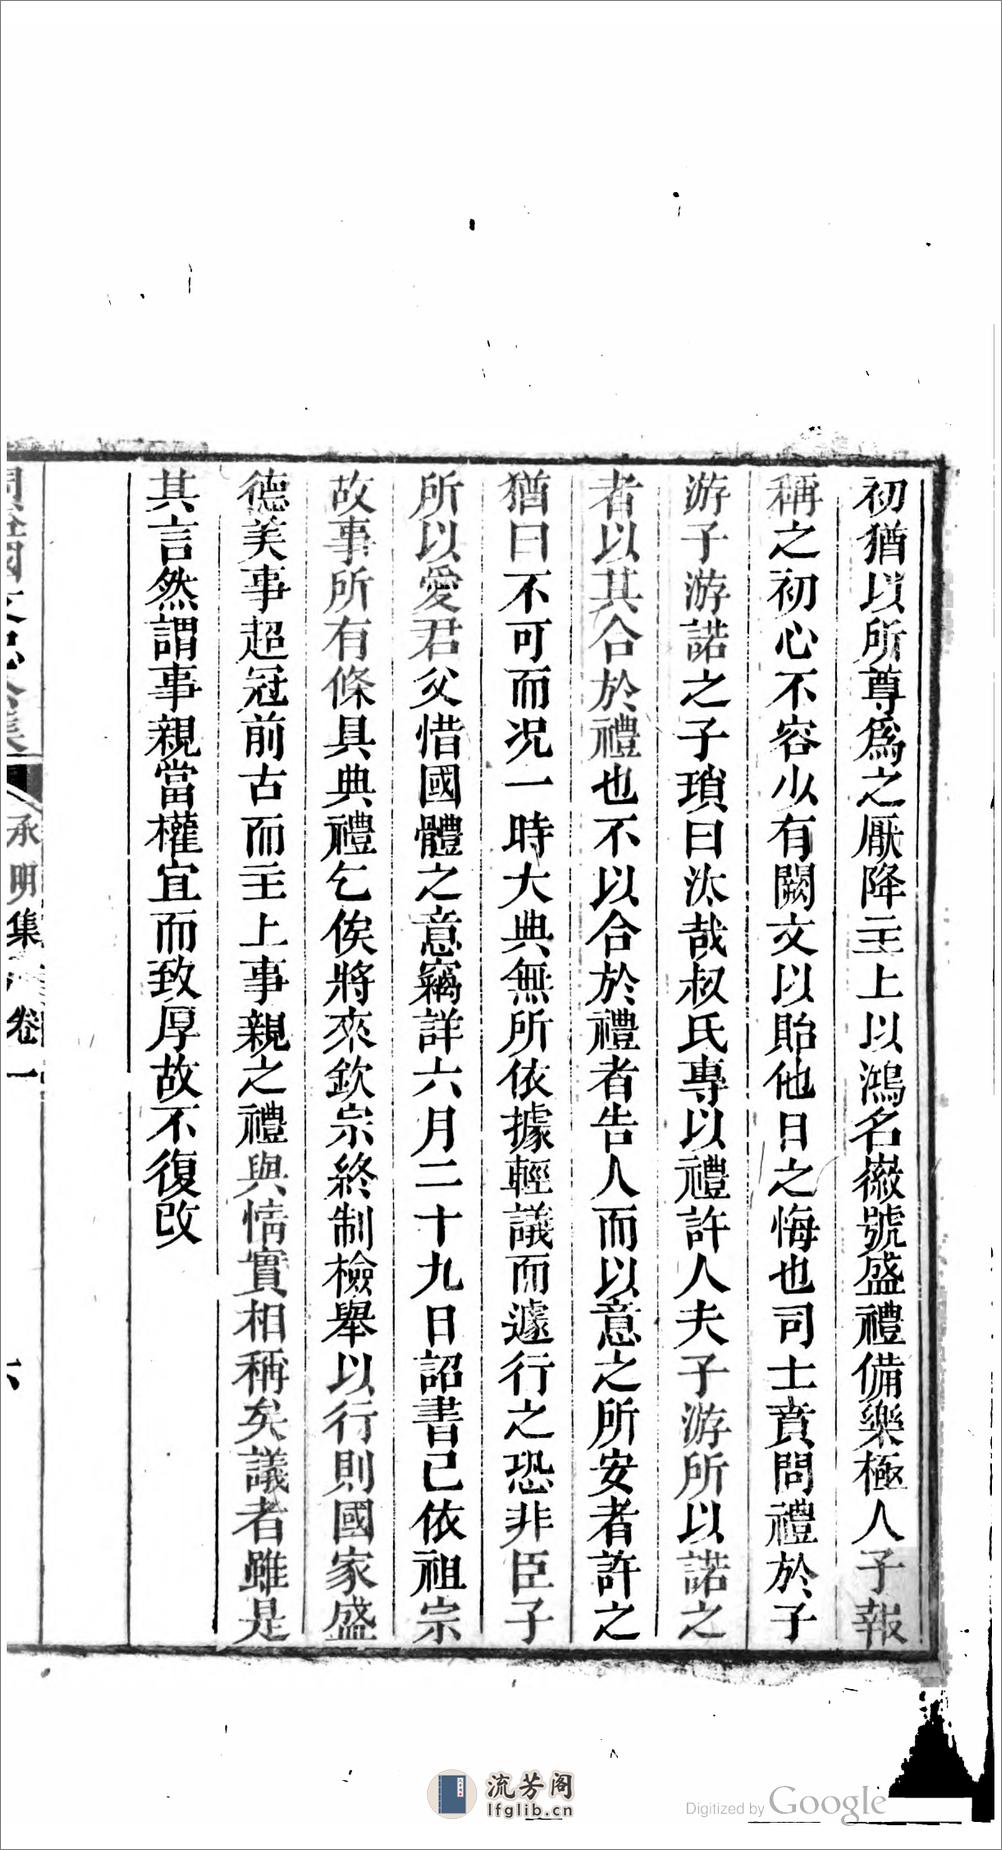 初猶以所尊爲之厭降主上以鴻名徽號盛禮備樂極人子報
稱之初心不容少有闕文以貽他日之悔也司士賁問禮於子
游子游諾之子瑣曰汰哉叔氏專以禮許人夫子游所以諾之
者以其合於禮也不以合於禮者告人而以意之所安者許之
猶曰不可而况一時大典無所依據輕議而遽行之恐非臣子
所以愛君父惜國體之意竊詳六月二十九日詔書已依祖宗
故事所有條具典禮乞俟將來欽宗終制檢舉以行則國家盛
德美事超冠前古而主上事親之禮與情實相稱矣議者雖是
其言然謂事親當權宜而致厚故不復改
承明集 卷一
六
流芳阁
lfglib.cn
Digitized by Google